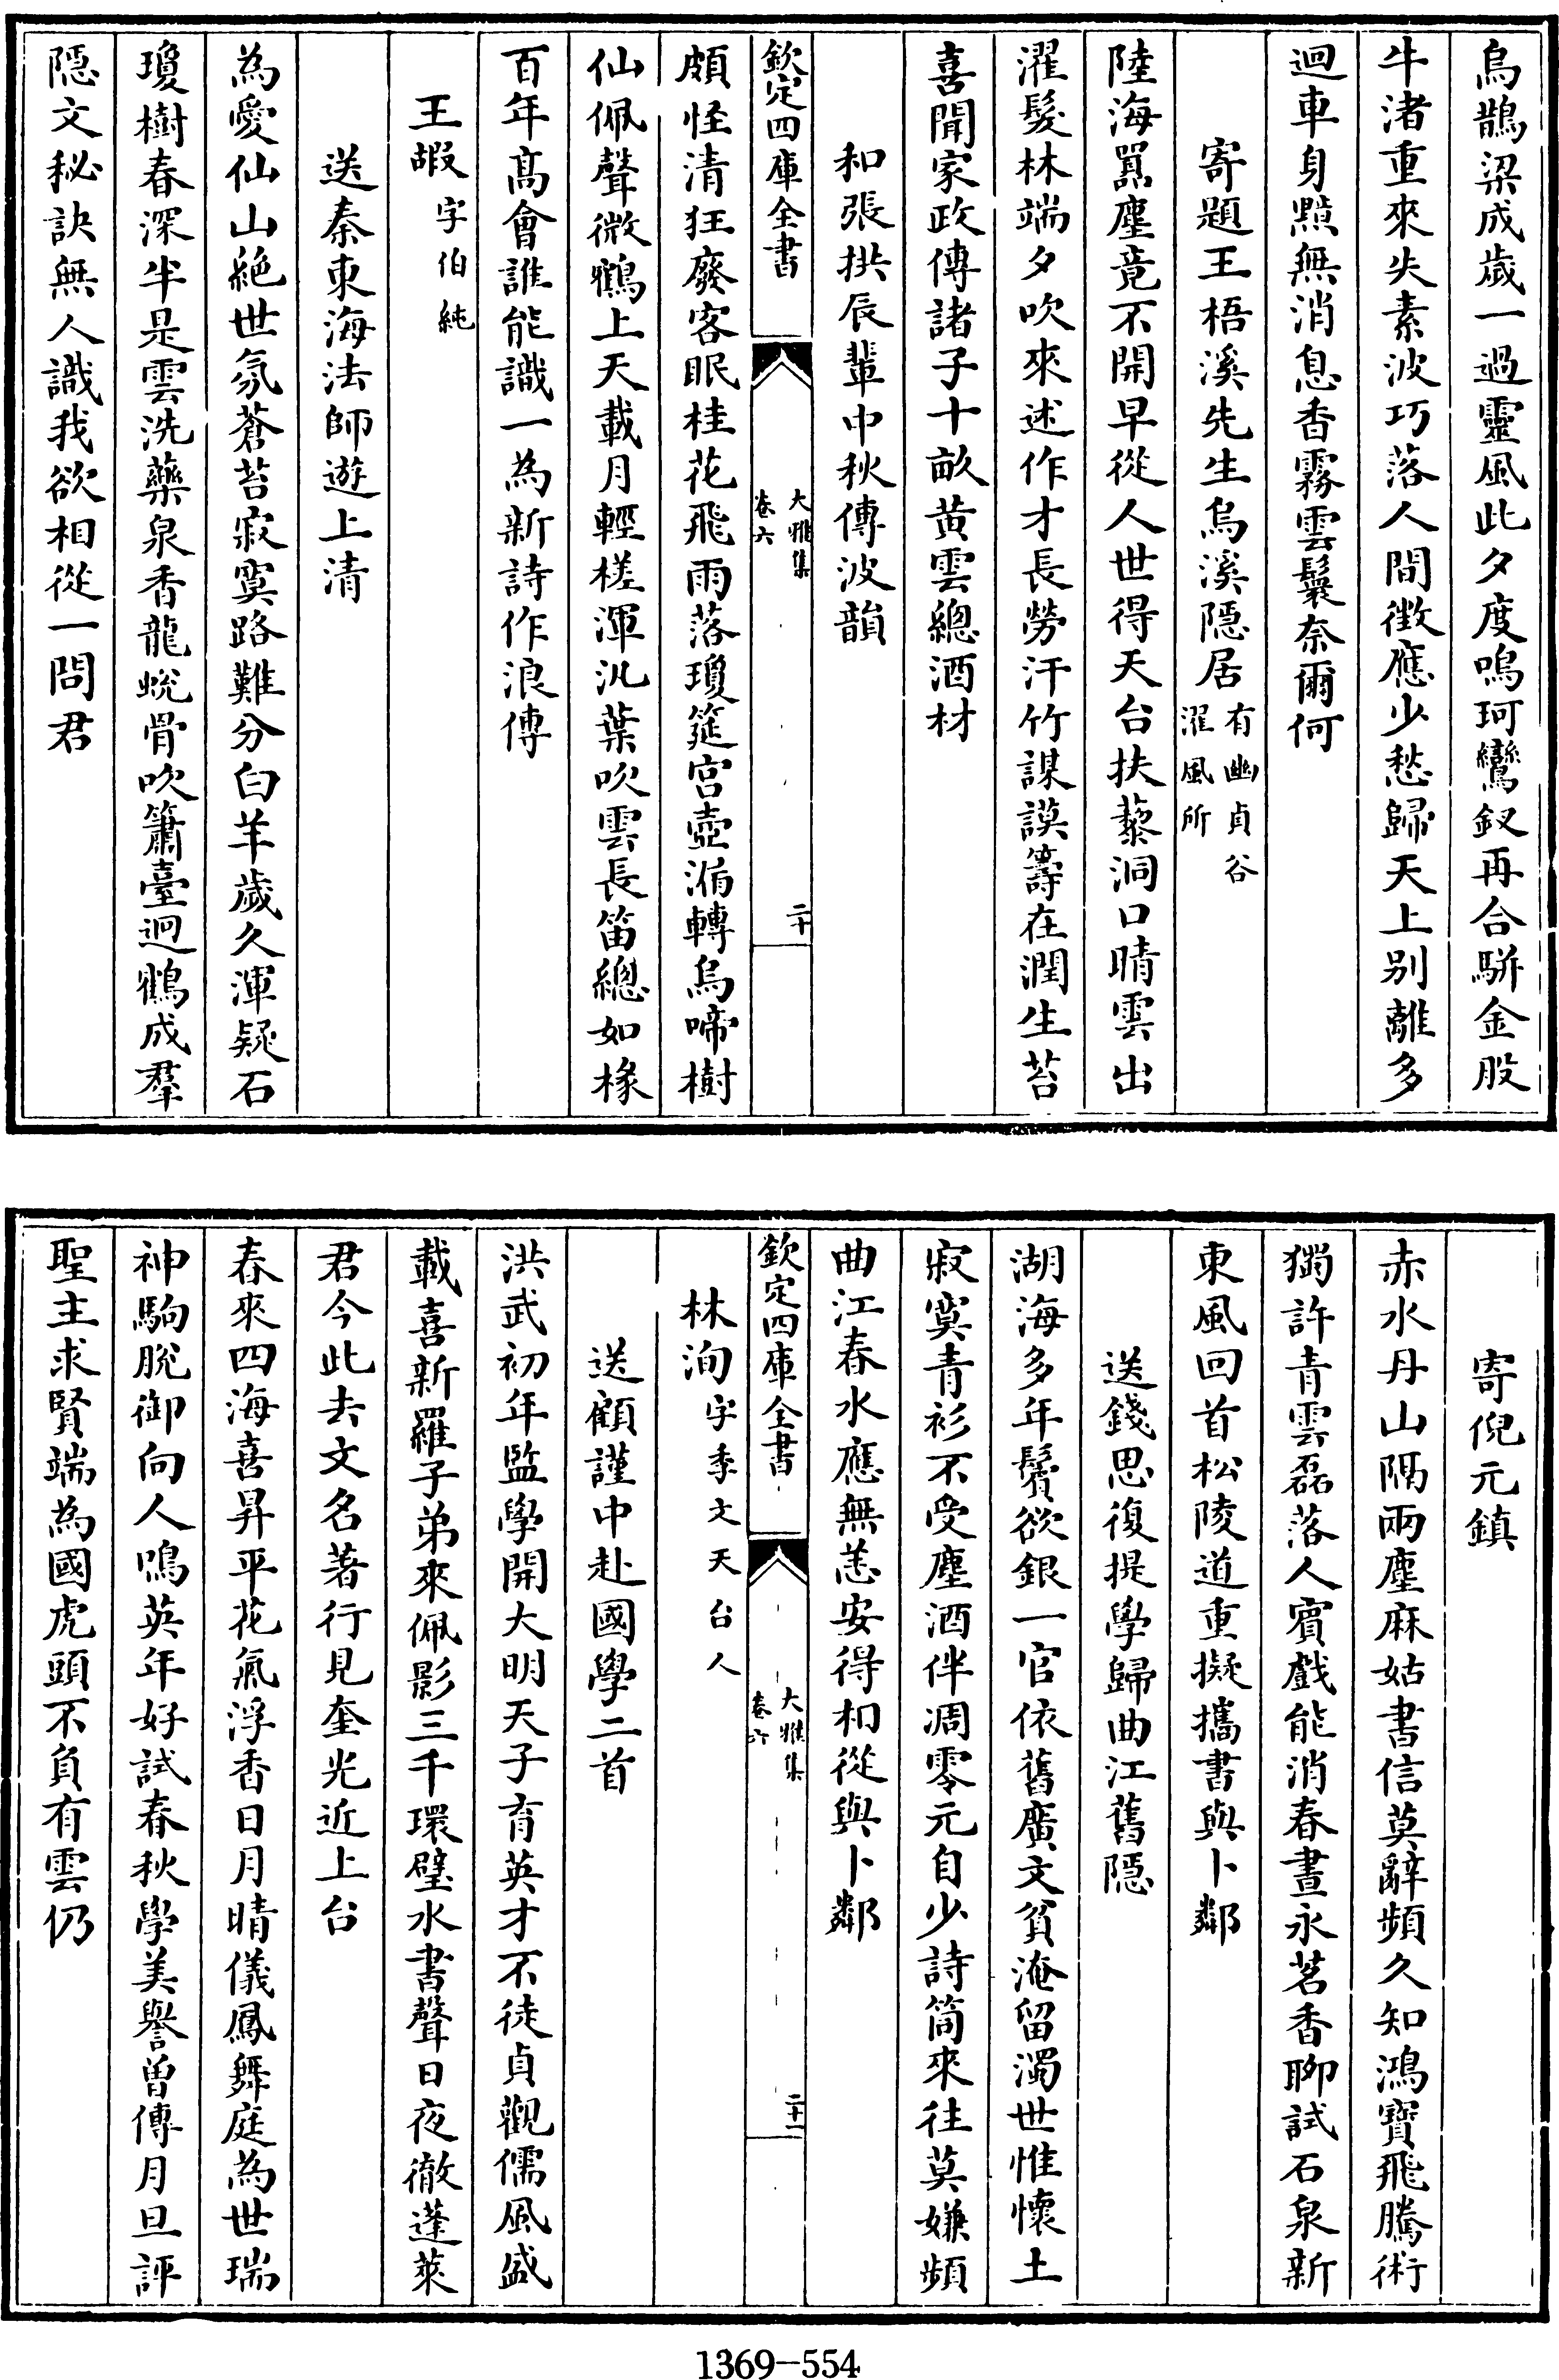 烏鵲梁成歲一過靈風此夕度鳴珂鸞釵再合駢金股
牛渚重來失素波巧落人間徴應少愁歸天上别離多
迴車身黥無消息香霧雲鬟奈爾何
寄題王梧溪先生烏溪隠居有幽貞谷濯風所
陸海囂塵竟不開早從人世得天台扶藜洞口晴雲出
濯髮林端夕吹來述作才長勞汗竹謀謨籌在潤生苔
喜聞家政傳諸子十畝黄雲總酒材
和張拱辰輩中秋傳波韻
欽定四庫全書
大雅集
卷六
二十
頗怪清狂廢客眠桂花飛雨落瓊筵宫壺漏轉烏啼樹
仙佩聲微鶴上天載月輕槎渾汎葉吹雲長笛總如椽
百年髙會誰能識一為新詩作浪傳
王嘏字伯純
送秦東海法師遊上清
為愛仙山絶世氛蒼苔寂寞路難分白羊歲久渾疑石
瓊樹春深半是雲洗藥泉香龍蛻骨吹簫臺迥鶴成羣
隠文秘訣無人識我欲相從一問君
寄倪元鎮
赤水丹山隔兩塵麻姑書信莫辭頻久知鴻寶飛騰術
獨許青雲磊落人賓戲能消春晝永茗香聊試石泉新
東風回首松陵道重擬攜書與卜鄰
送錢思復提學歸曲江舊隠
湖海多年鬢欲銀一官依舊廣文貧淹留濁世惟懷土
寂寞青衫不受塵酒伴凋零元自少詩筒來往莫嫌頻
曲江春水應無恙安得相從與卜鄰
欽定四庫全書
大雅集
卷六
二十一
林洵字季文天台人
送顧謹中赴國學二首
洪武初年監學開大明天子育英才不徒貞觀儒風盛
載喜新羅子弟來佩影三千環璧水書聲日夜徹蓬萊
君今此去文名著行見奎光近上台
春來四海喜昇平花氣浮香日月晴儀鳳舞庭為世瑞
神駒脫御向人鳴英年好試春秋學美譽曽傳月旦評
聖主求賢端為國虎頭不負有雲仍
1369-554